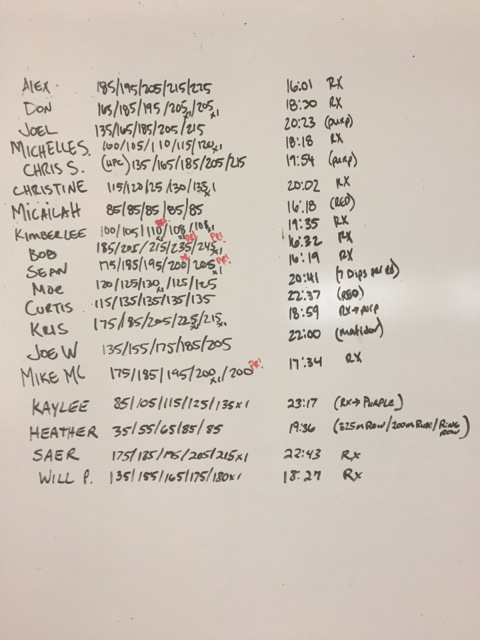 ALEX 185/195/205/215/225 16:01 RX
DON 165/185/195/205x1/205x1 18:30 RX
JOEL 135/165/185/205/215 20:23 (purp)
MICHELLE S. 100/105/110/115/120x1 18:18 RX
CHRIS S. (UPC) 135/165/185/205/215 19:54 (purp)
CHRISTINE 115/120/25/130/135x1 20:02 RX
MICAILAH 85/85/85/85/85 16:18 (RED)
KIMBERLEE 100/105/110/108/108x1 19:35 RX
BOB 185/205/215/235/245x1 PR! 16:32 RX
SEAN 175/185/195/200/205x1 PR! 16:19 RX
MOE 120/125/130x1/125/125 20:41 (7 Dips per rd)
CURTIS 115/135/135/135/135 22:37 (RED)
KRIS 175/185/205/225x1/215x1 18:59 RX→purp
JOE W 135/155/175/185/205 22:00 (matador)
MIKE MC 175/185/195/200x1/200 PR! 17:34 RX
KAYLEE 85/105/115/125/135x1 23:17 (RX→PURPLE)
HEATHER 35/55/65/85/85 19:36 (325m ROW/200m RUN/RING ROW)
SAER 175/185/195/205/215x1 22:43 Rx
WILL P. 135/155/165/175/180x1 18:27 Rx